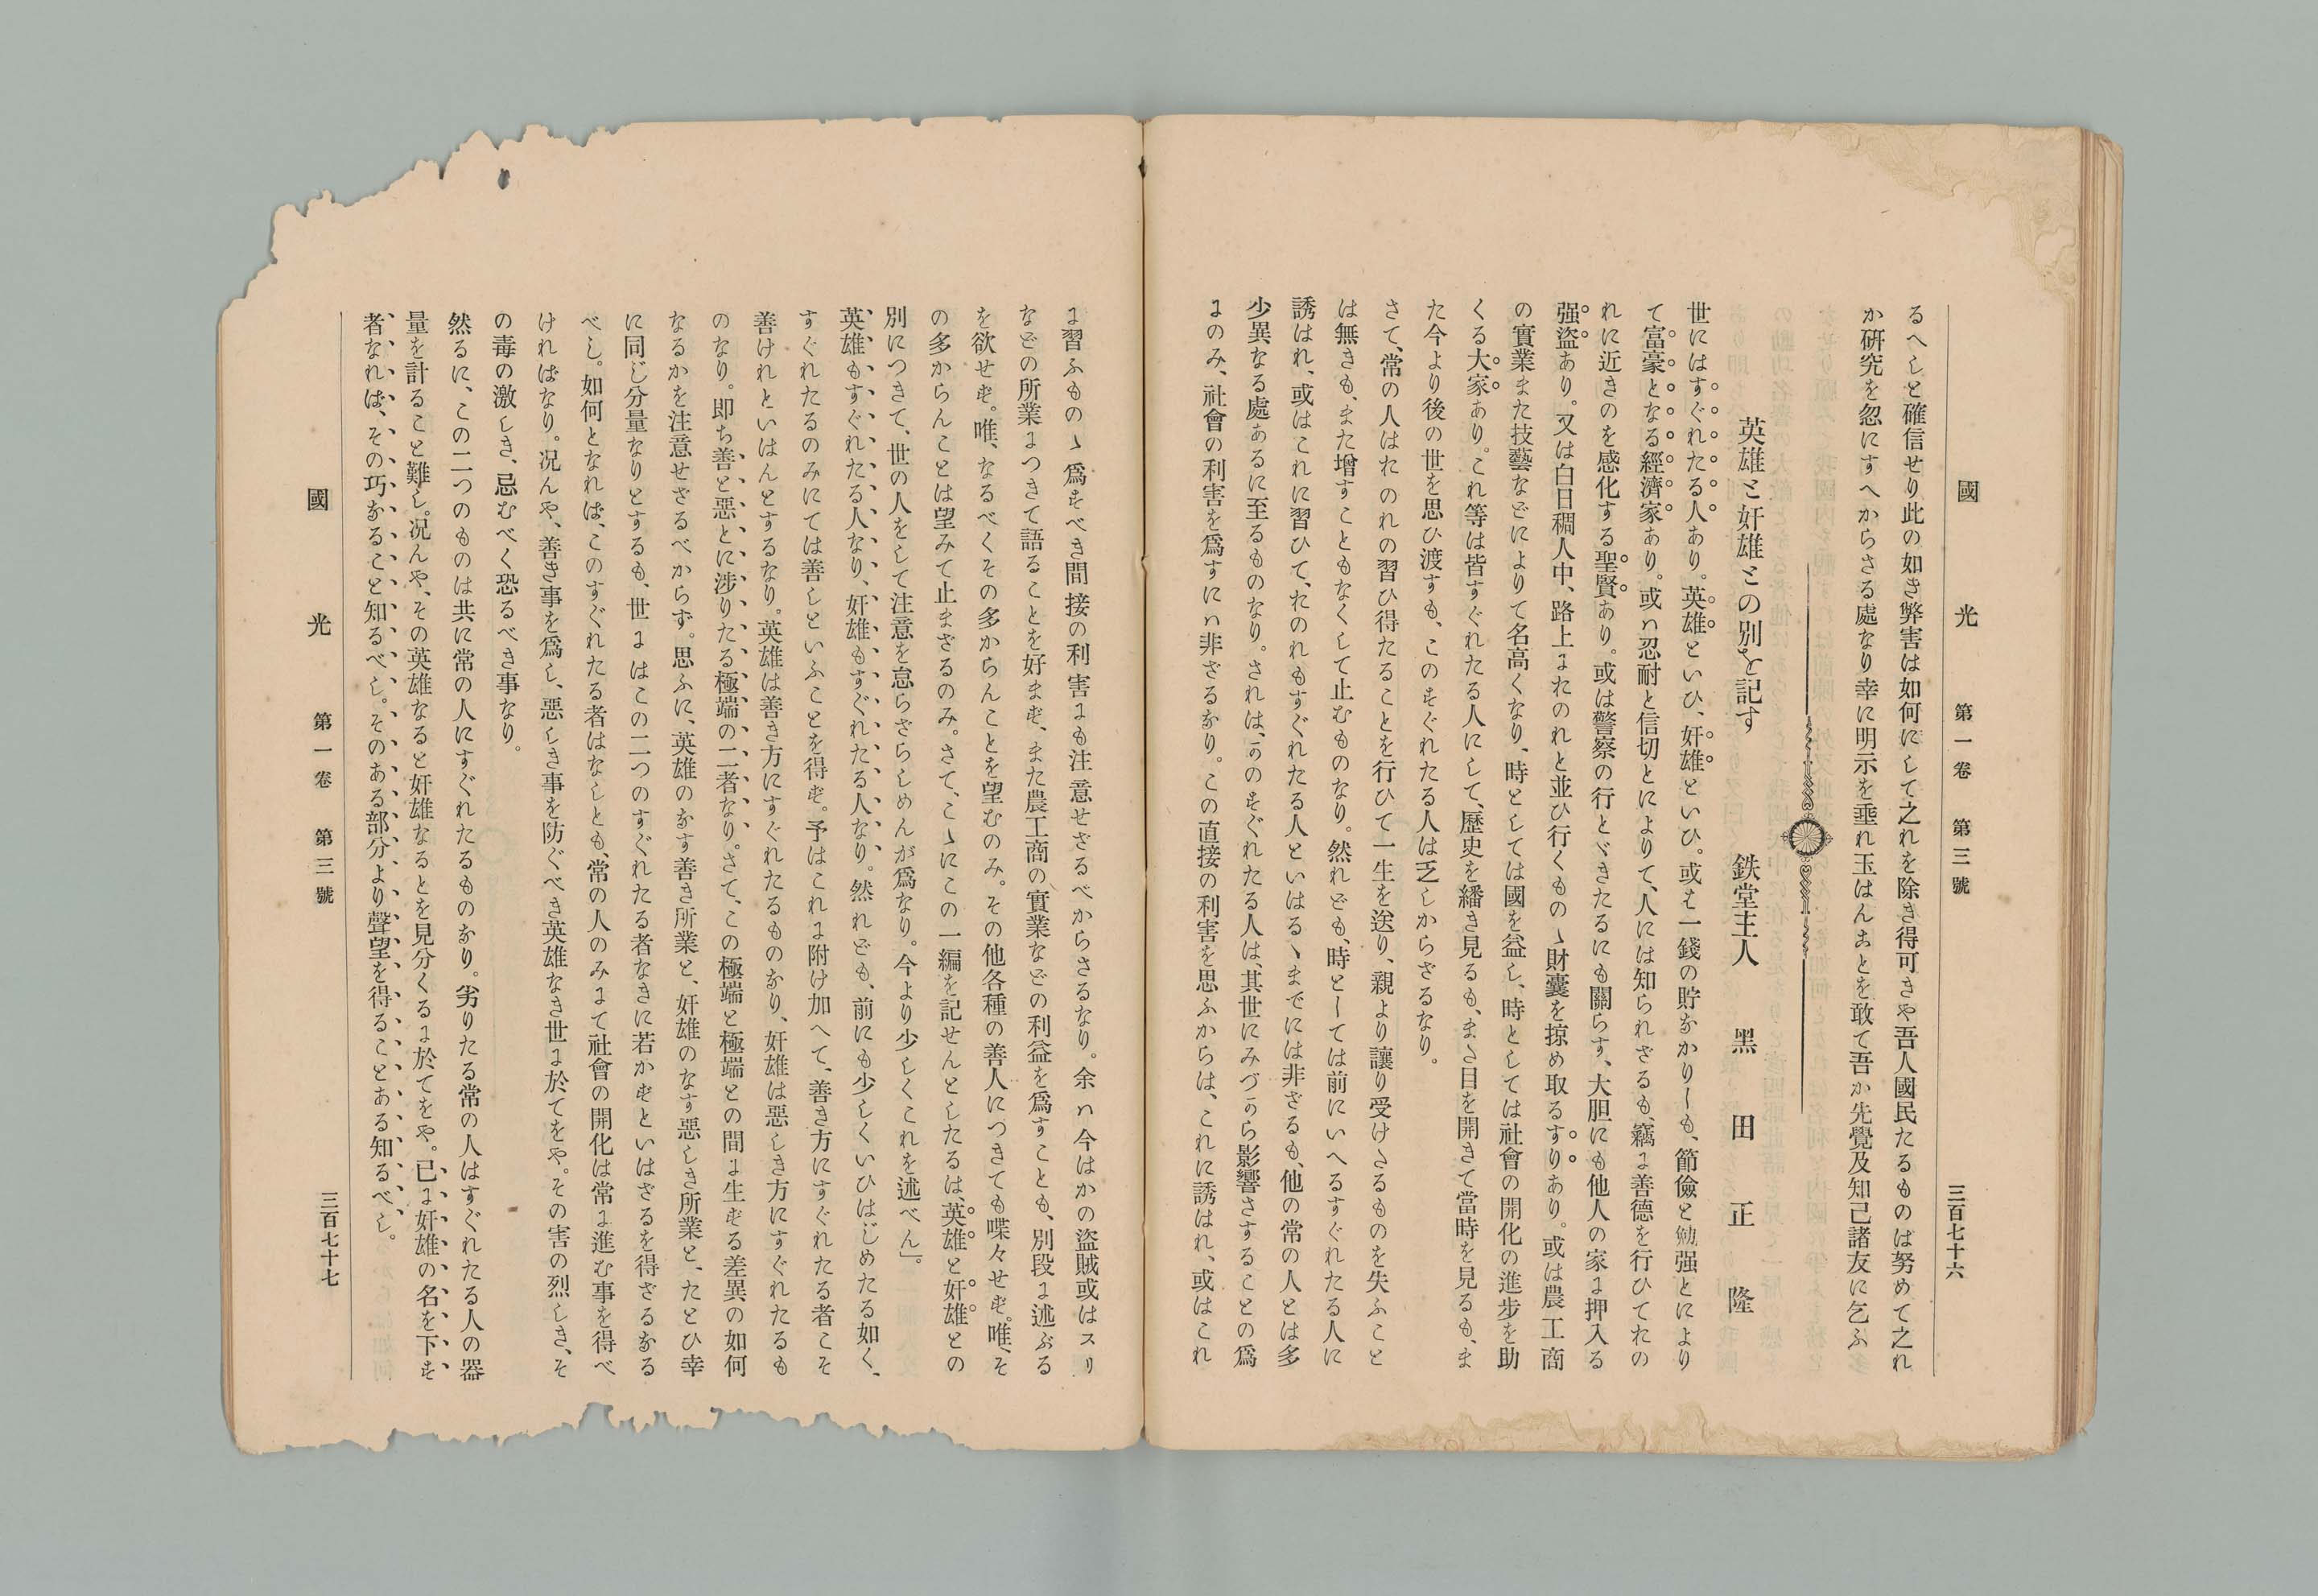 國光 第一卷 第三號 三百七十六
るへしと確信せり此の如き弊害は如何にして之れを除き得可きや吾人國民たるものは努めて之れ
か硏究を忽にすへからさる處なり幸に明示を垂れ玉はんことを敢て吾か先覺及知己諸友に乞ふ
英雄と奸雄との別を記す
鉄堂主人 黑田正隆
世にはすぐれたる人あり。英雄といひ、奸雄といひ。或は一錢の貯なかりしも、節儉と勉强とにより
て富豪となる經濟家あり。或は忍耐と信切とによりて、人には知られざるも、竊に善德を行ひておの
れに近きのを感化する聖賢あり。或は警察の行とゞきたるにも關らす、大胆にも他人の家に押入る
强盜あり。又は白日稠人中、路上におのれと並ひ行くものゝ財囊を掠め取るすりあり。或は農工商
の實業また技藝などによりて名高くなり、時としては國を益し、時としては社會の開化の進步を助
くる大家あり。これ等は皆すぐれたる人にして、歷史を繙き見るも、まさ目を開きて當時を見るも、ま
た今より後の世を思ひ渡すも、このすぐれたる人は乏しからざるなり。
さて、常の人はおのれの習ひ得たることを行ひて一生を送り、親より讓り受けさるものを失ふこと
は無きも、また增すこともなくして止むものなり。然れども、時としては前にいへるすぐれたる人に
誘はれ、或はこれに習ひて、おのれもすぐれたる人といはるゝまでには非ざるも、他の常の人とは多
少異なる處あるに至るものなり。されは、かのすぐれたる人は、其世にみづから影響さすることの爲
にのみ、社會の利害を爲すには非ざるなり。この直接の利害を思ふからは、これに誘はれ、或はこれ
に習ふものゝ爲すべき間接の利害にも注意せざるべからさるなり。余は今はかの盜賊或はスリ
などの所業につきて語ることを好まず、また農工商の實業などの利益を爲すことも、別段に述ぶる
を欲せず。唯、なるべくその多からんことを望むのみ。その他各種の善人につきても喋々せず。唯、そ
の多からんことは望みて止まさるのみ。さて、こゝにこの一編を記せんとしたるは、英雄と奸雄との
別につきて、世の人をして注意を怠らさらしめんが爲なり。今より少しくこれを述べん」。
英雄もすぐれたる人なり、奸雄もすぐれたる人なり。然れども、前にも少しくいひはじめたる如く、
すぐれたるのみにては善しといふことを得ず。予はこれに附け加へて、善き方にすぐれたる者こそ
善けれといはんとするなり。英雄は善き方にすぐれたるものなり、奸雄は惡しき方にすぐれたるも
のなり。即ち善と惡とに涉りたる極端の二者なり。さて、この極端と極端との間に生ずる差異の如何
なるかを注意せさるべからず。思ふに、英雄のなす善き所業と、奸雄のなす惡しき所業と、たとひ幸
に同じ分量なりとするも、世にはこの二つのすぐれたる者なきに若かずといはさるを得さるなる
べし。如何となれば、このすぐれたる者はなしとも、常の人のみにて社會の開化は常に進む事を得べ
ければなり。况んや、善き事を爲し、惡しき事を防ぐべき英雄なき世に於てをや。その害の烈しき、そ
の毒の激しき、忌むべく恐るべき事なり。
然るに、この二つのものは共に常の人にすぐれたるものなり。劣りたる常の人はすぐれたる人の器
量を計ること難し。况んや、その英雄なると奸雄なるとを見分くるに於てをや。已に奸雄の名を下す
者なれば、その巧なること知るべし。そのある部分より聲望を得ることある知るべし。
國光 第一卷 第三號 三百七十七